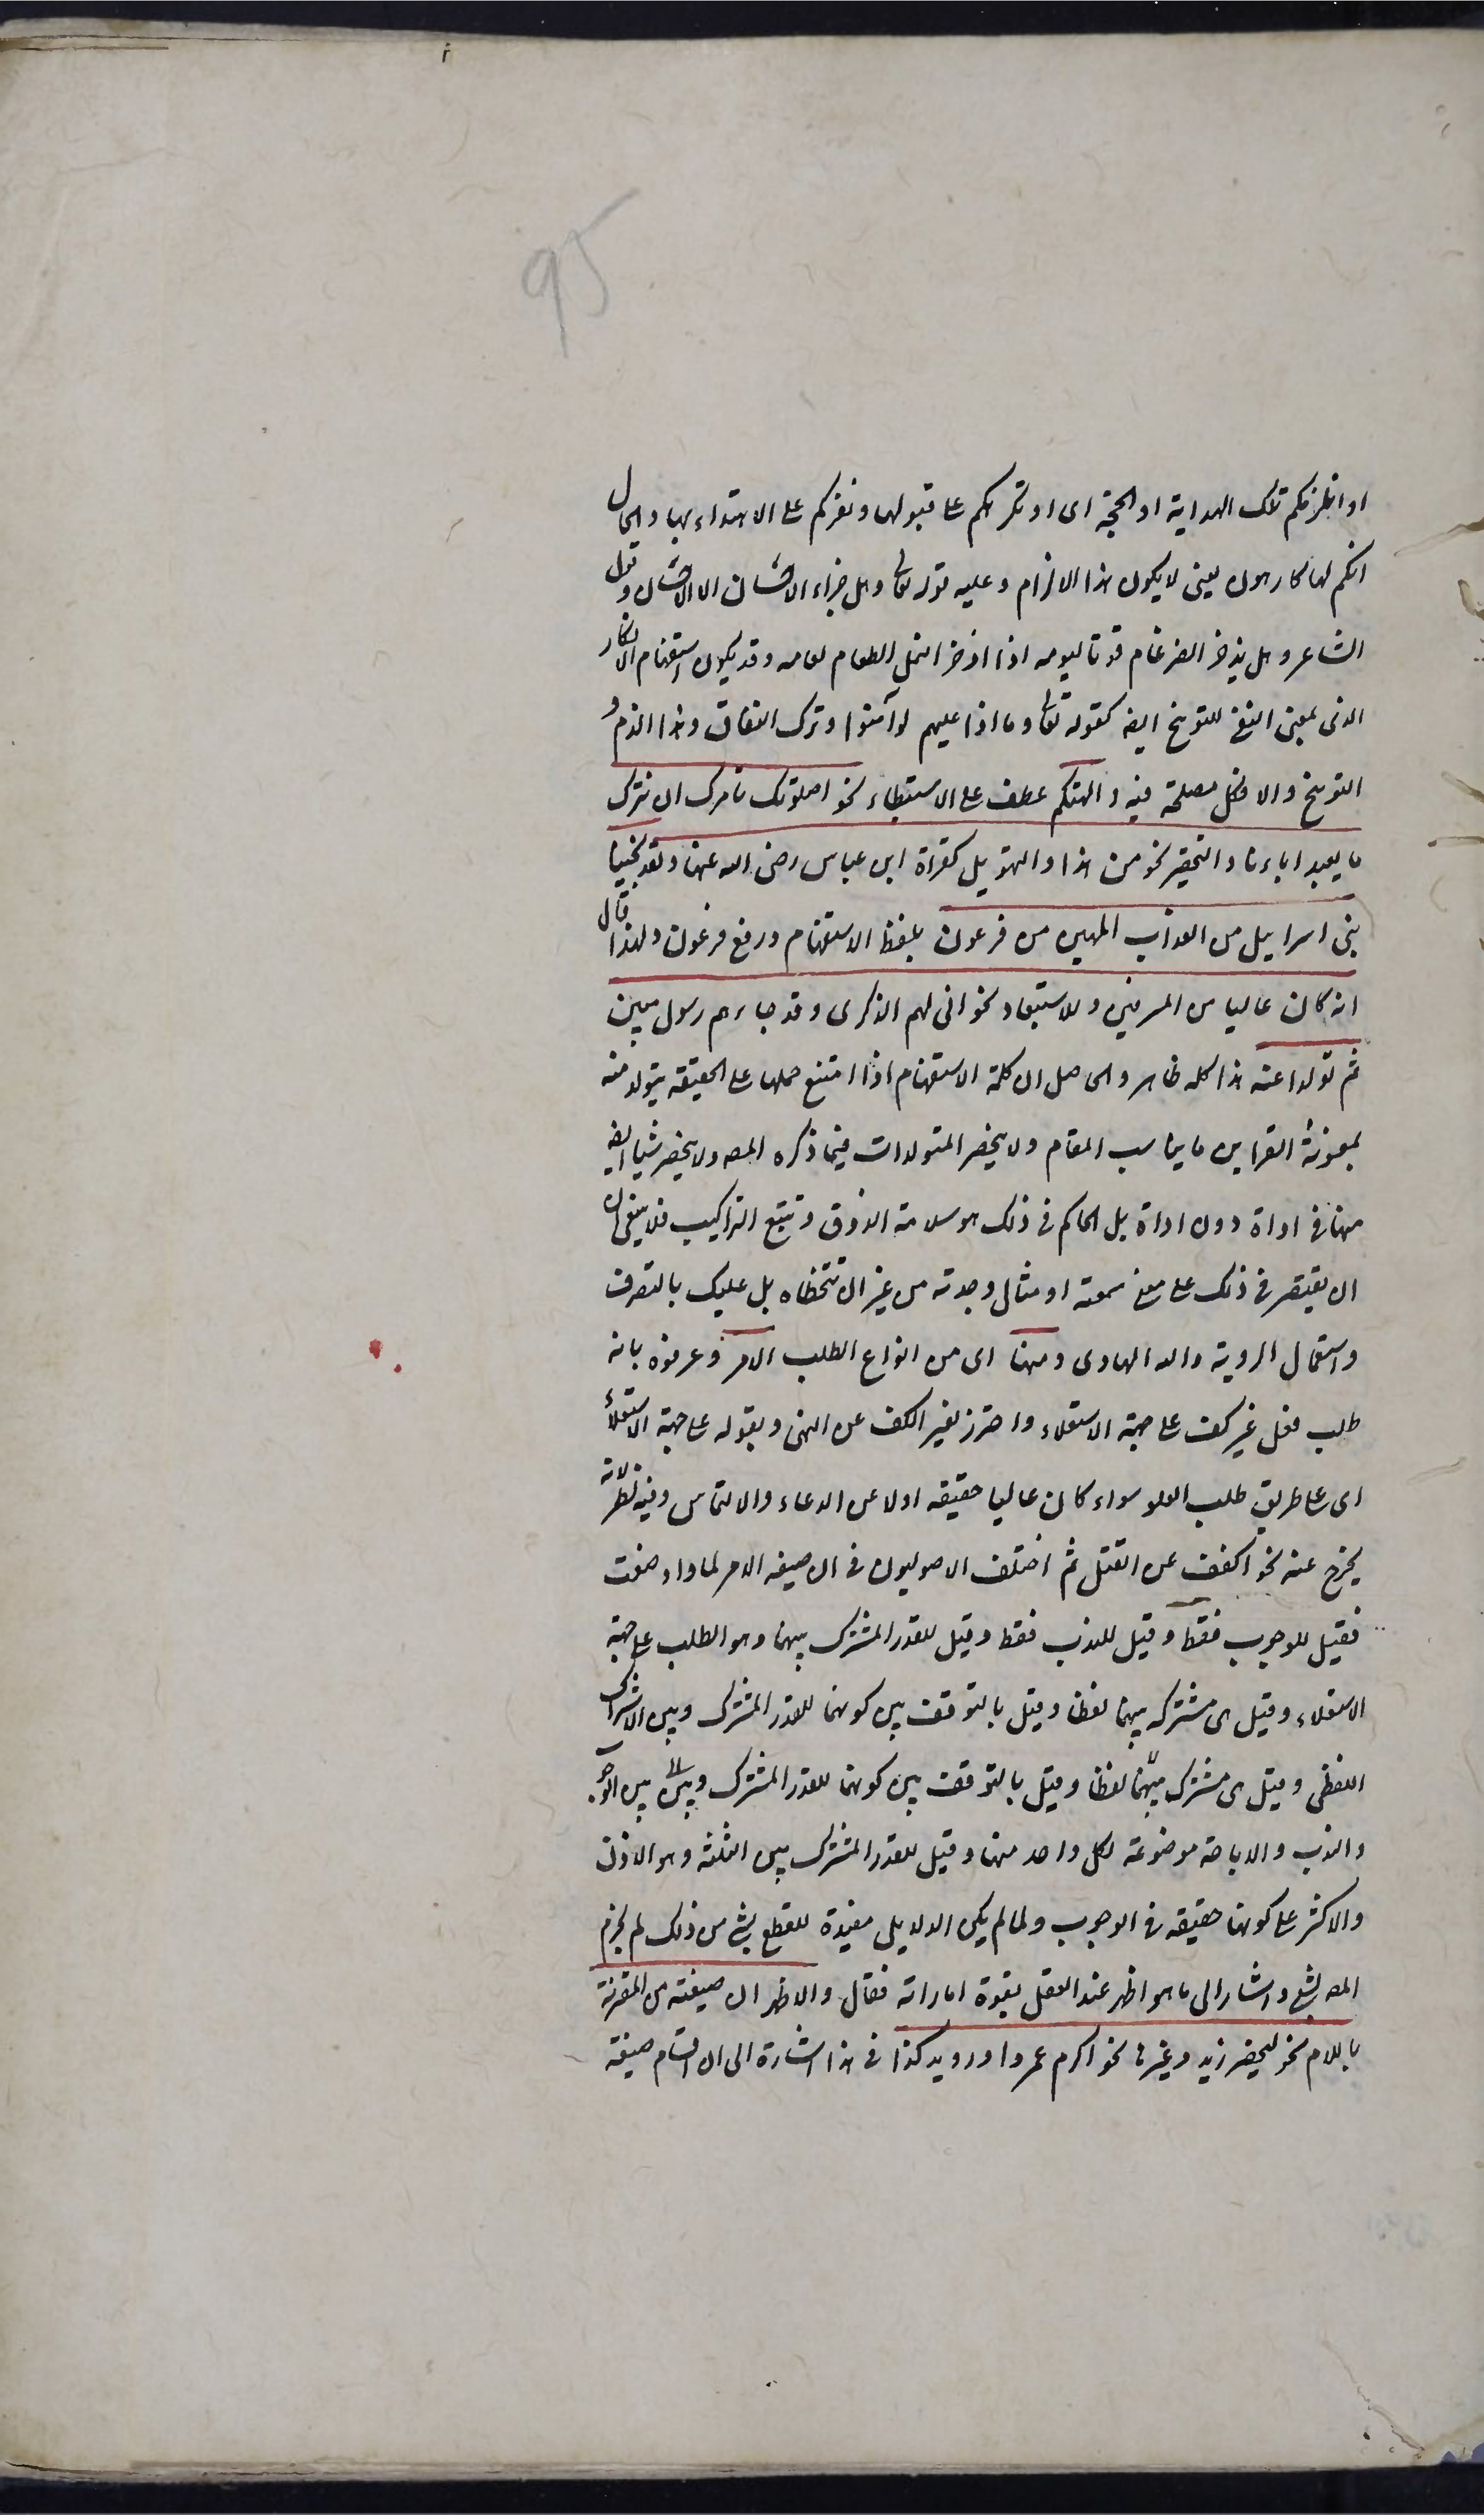 95
او انلزمكم تلك الهداية او الحجة اى او نكرهكم على قبولها ونقركم على الاهتداء بها والحال
انكم لها كارهون يعنى لا يكون هذا الالزام وعليه قوله تعالى وهل جزاء الاحسان الا الاحسان وقول
الشاعر وهل يذخر الضرغام قوتا ليومه اذا اذخر النمل الطعام لعامه وقد يكون استفهام الانكار
الذى بمعنى النفى للتوبيخ ايضا كقوله تعالى وماذا عليهم لو آمنوا وترك النفاق وهذا الذم و
التوبيخ والا فكل مصلحة فيه والتهكم عطف على الاستبطاء نحو اصلوتك تأمرك ان نترك
ما يعبد اباءنا والتحقير نحو من هذا والتهويل كقراة ابن عباس رضى الله عنهما ولقد نجينا
بنى اسراييل من العذاب المهين من فرعون بلفظ الاستفهام ورفع فرعون ولهذا قال
انه كان عاليا من المسرفين وللاستبعاد نحو انى لهم الذكرى وقد جاءهم رسول مبين
ثم تولوا عنه هذا كله ظاهر والحاصل ان كلمة الاستفهام اذا امتنع حملها على الحقيقة يتولد منه
بمعونة القراين ما يناسب المقام ولا يخصر المتولدات فيما ذكره المصـ ولا يخصر شيا ايضا
منها فى اداة دون اداة بل الحاكم فى ذلك هو سلامة الذوق وتتبع التراكيب فلا ينبغى
ان يقتصر فى ذلك على معنى سمعته او مثال وجدته من غير ان تتخطاه بل عليك بالتصرف
واستعمال الروية والله الهادى ومنها اى من انواع الطلب الامر وعرفوه بانه
طلب فعل غير كف على جهة الاستعلاء واحترز بغير الكف عن النهى وبقوله على جهة الاستعلاء
اى على طريق طلب العلو سواء كان عاليا حقيقه اولا عن الدعاء والالتماس وفيه نظر لانه
يخرج عنه نحو اكفف عن القتل ثم اختلف الاصوليون فى ان صيغه الامر لماذا وضعت
فقيل للوجوب فقط وقيل للندب فقط وقيل للقدر المشترك بينهما وهو الطلب على جهة
الاستعلاء وقيل هى مشتركه بينهما لفظا وقيل بالتوقف بين كونها للقدر المشترك وبين الاشتراك
اللفظى وقيل هى مشترك بينهما لفظا وقيل بالتوقف بين كونها للقدر المشترك وبين بين الوجوب
والندب والاباحة موضوعة لكل واحد منها وقيل للقدر المشترك بين الثلثه وهو الاذن
والاكثر على كونها حقيقه فى الوجوب ولما لم يكن الدلايل مفيدة للقطع بشئ من ذلك لم يجزم
المصـ بشئ واشار الى ما هو اظهر عند العقل بقوة اماراته فقال والاظهر ان صيغته من المقرنة
باللام نحو ليحضر زيد وغيرها نحو اكرم عمروا ورويد كذا فى هذا اشارة الى ان اقسام صيغه